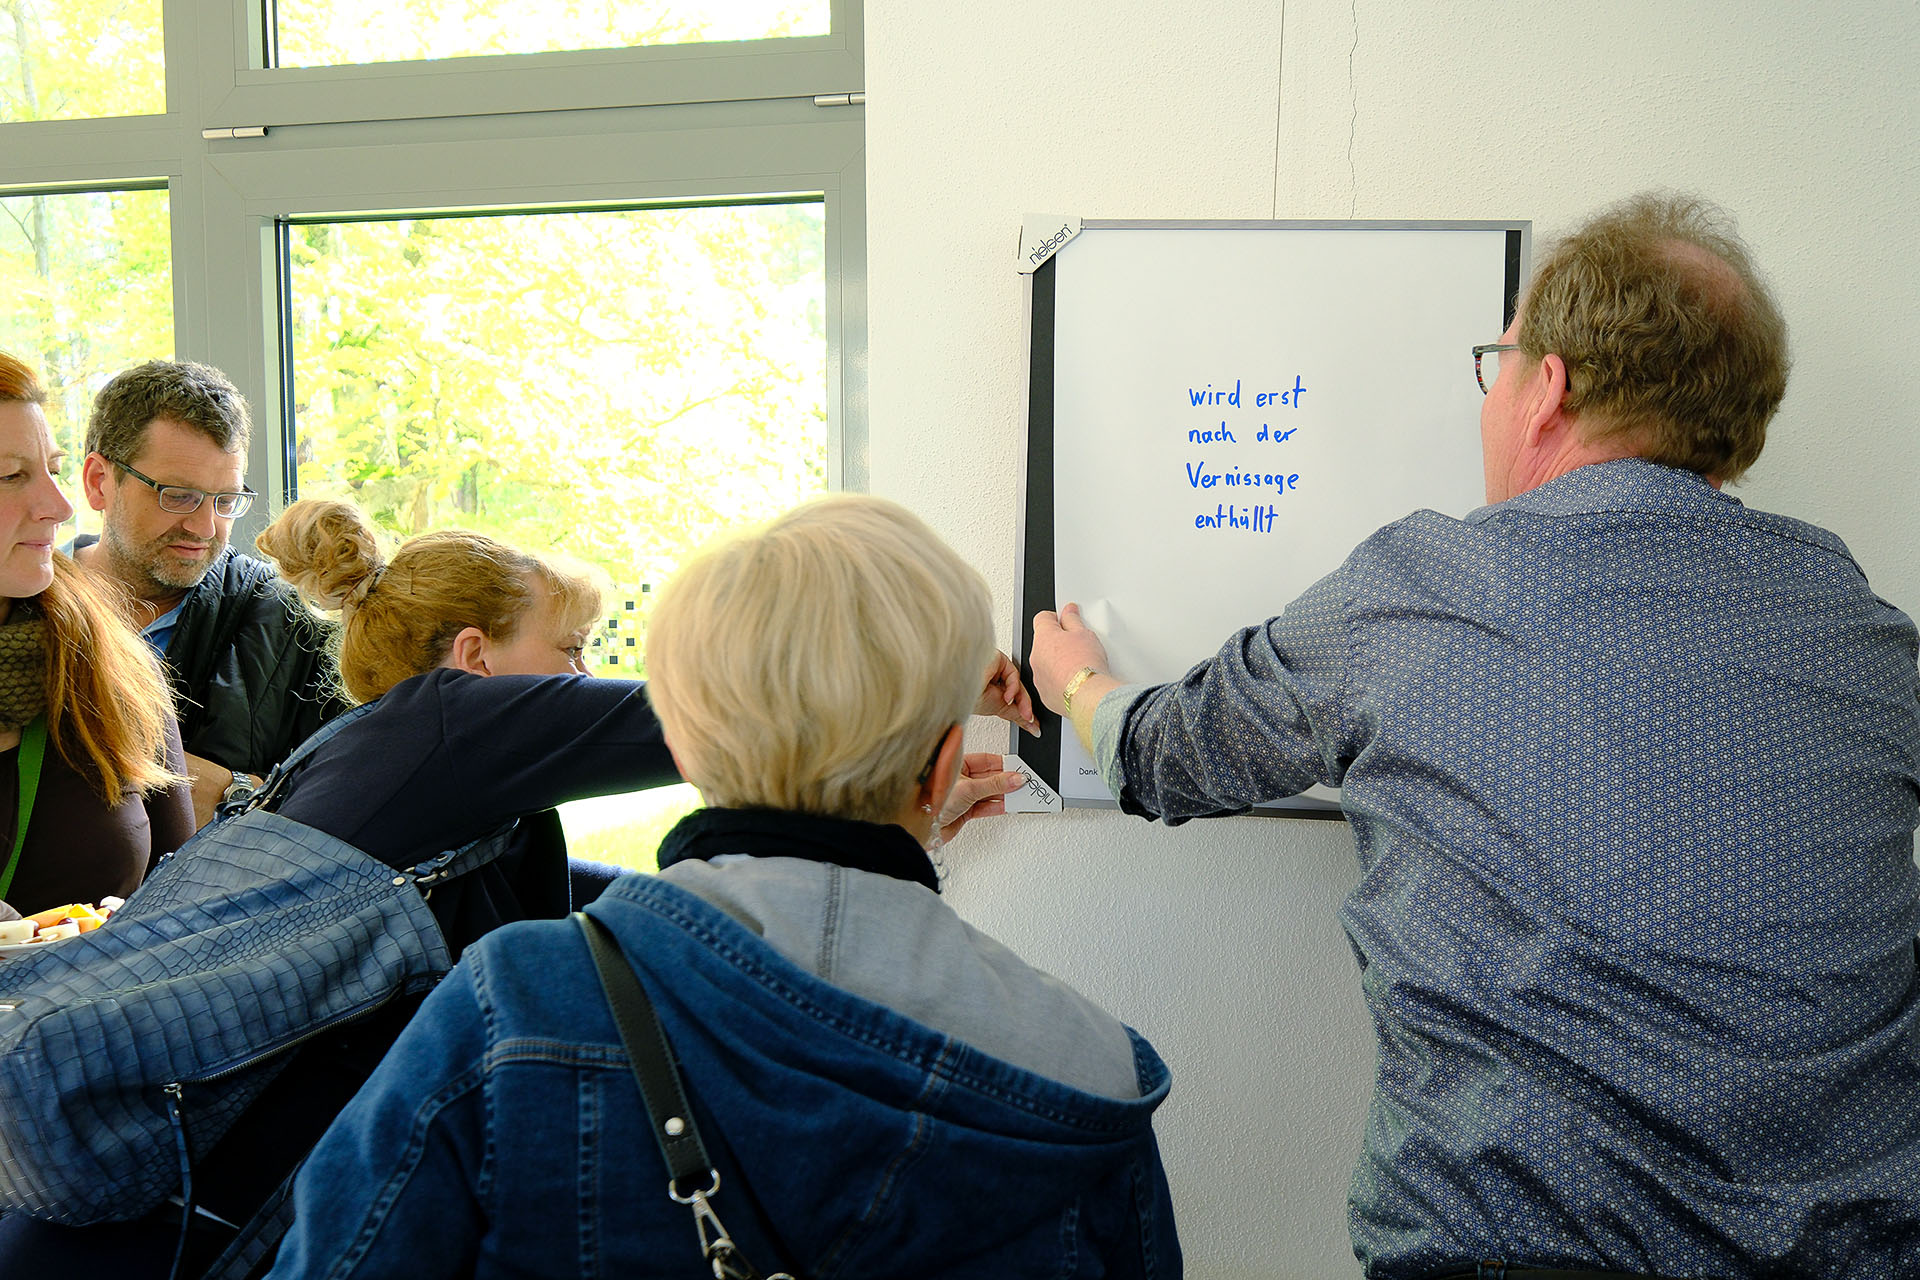 nielsen
wird erst
nach der
Vernissage
enthüllt
Dank
nielsen